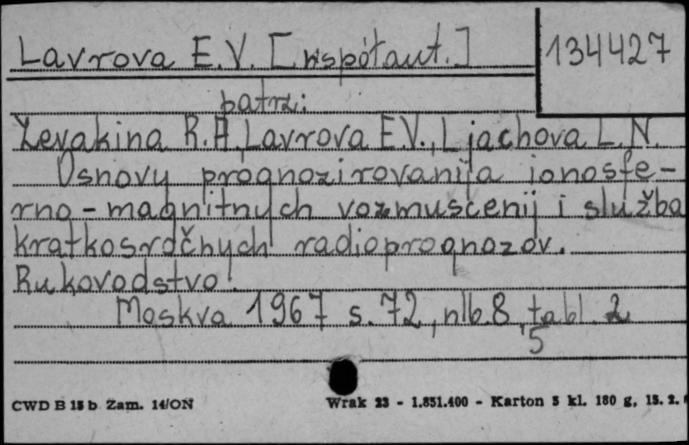 Lavrova E.V. [współaut.]
134427
patrz:
Zevakina R.A., Lavrova E.V., Ljachova L.N.
Osnovy prognozirovanija ionosfe-
rno-magnitnych vozmuščenij i služba
kratkosročnych radioprognozov.
Rukovodstvo.
Moskva 1967 s. 72, nlb. 8, tabl. 2
5
CWD B 15 b Zam. 14/ON
Wrak 23 - 1.851.400 - Karton 5 kl. 180 g, 15. 2.